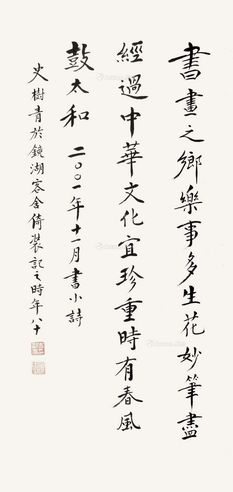 書畫之鄉樂事多生花妙筆盡
經過中華文化宜珍重時有春風
鼓太和 二〇〇一年十一月書小詩
史樹青於鏡湖客舍倚裝記之時年八十